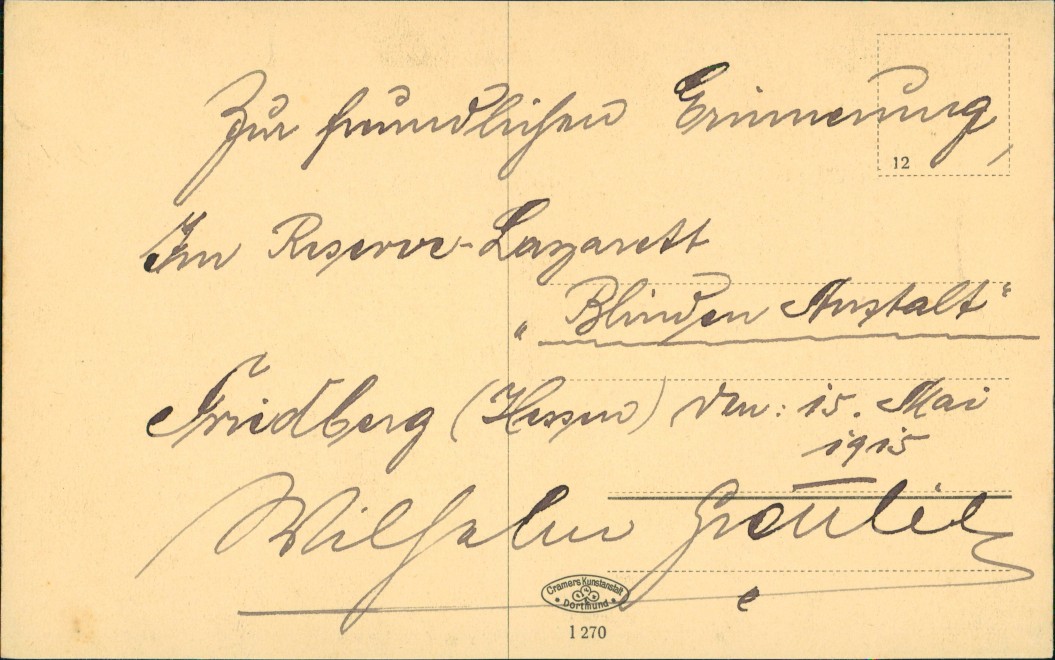 Zur freundlichen Erinnerung,
12
Im Reserve-Lazarett
„Blinden Anstalt“
Friedberg (Hessen) den: 15. Mai
1915
Wilhelm
Cramers Kunstanstalt
Dortmund
1 270